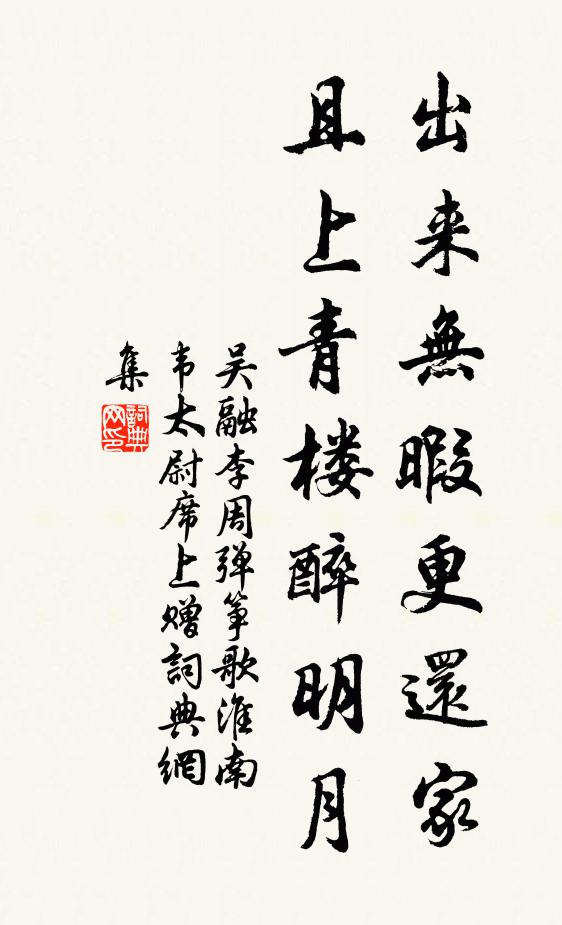 出来無暇更還家
且上青楼醉明月
吴融李周弹筝歌淮南
韦太尉席上赠詞典網
集
詞典
网印